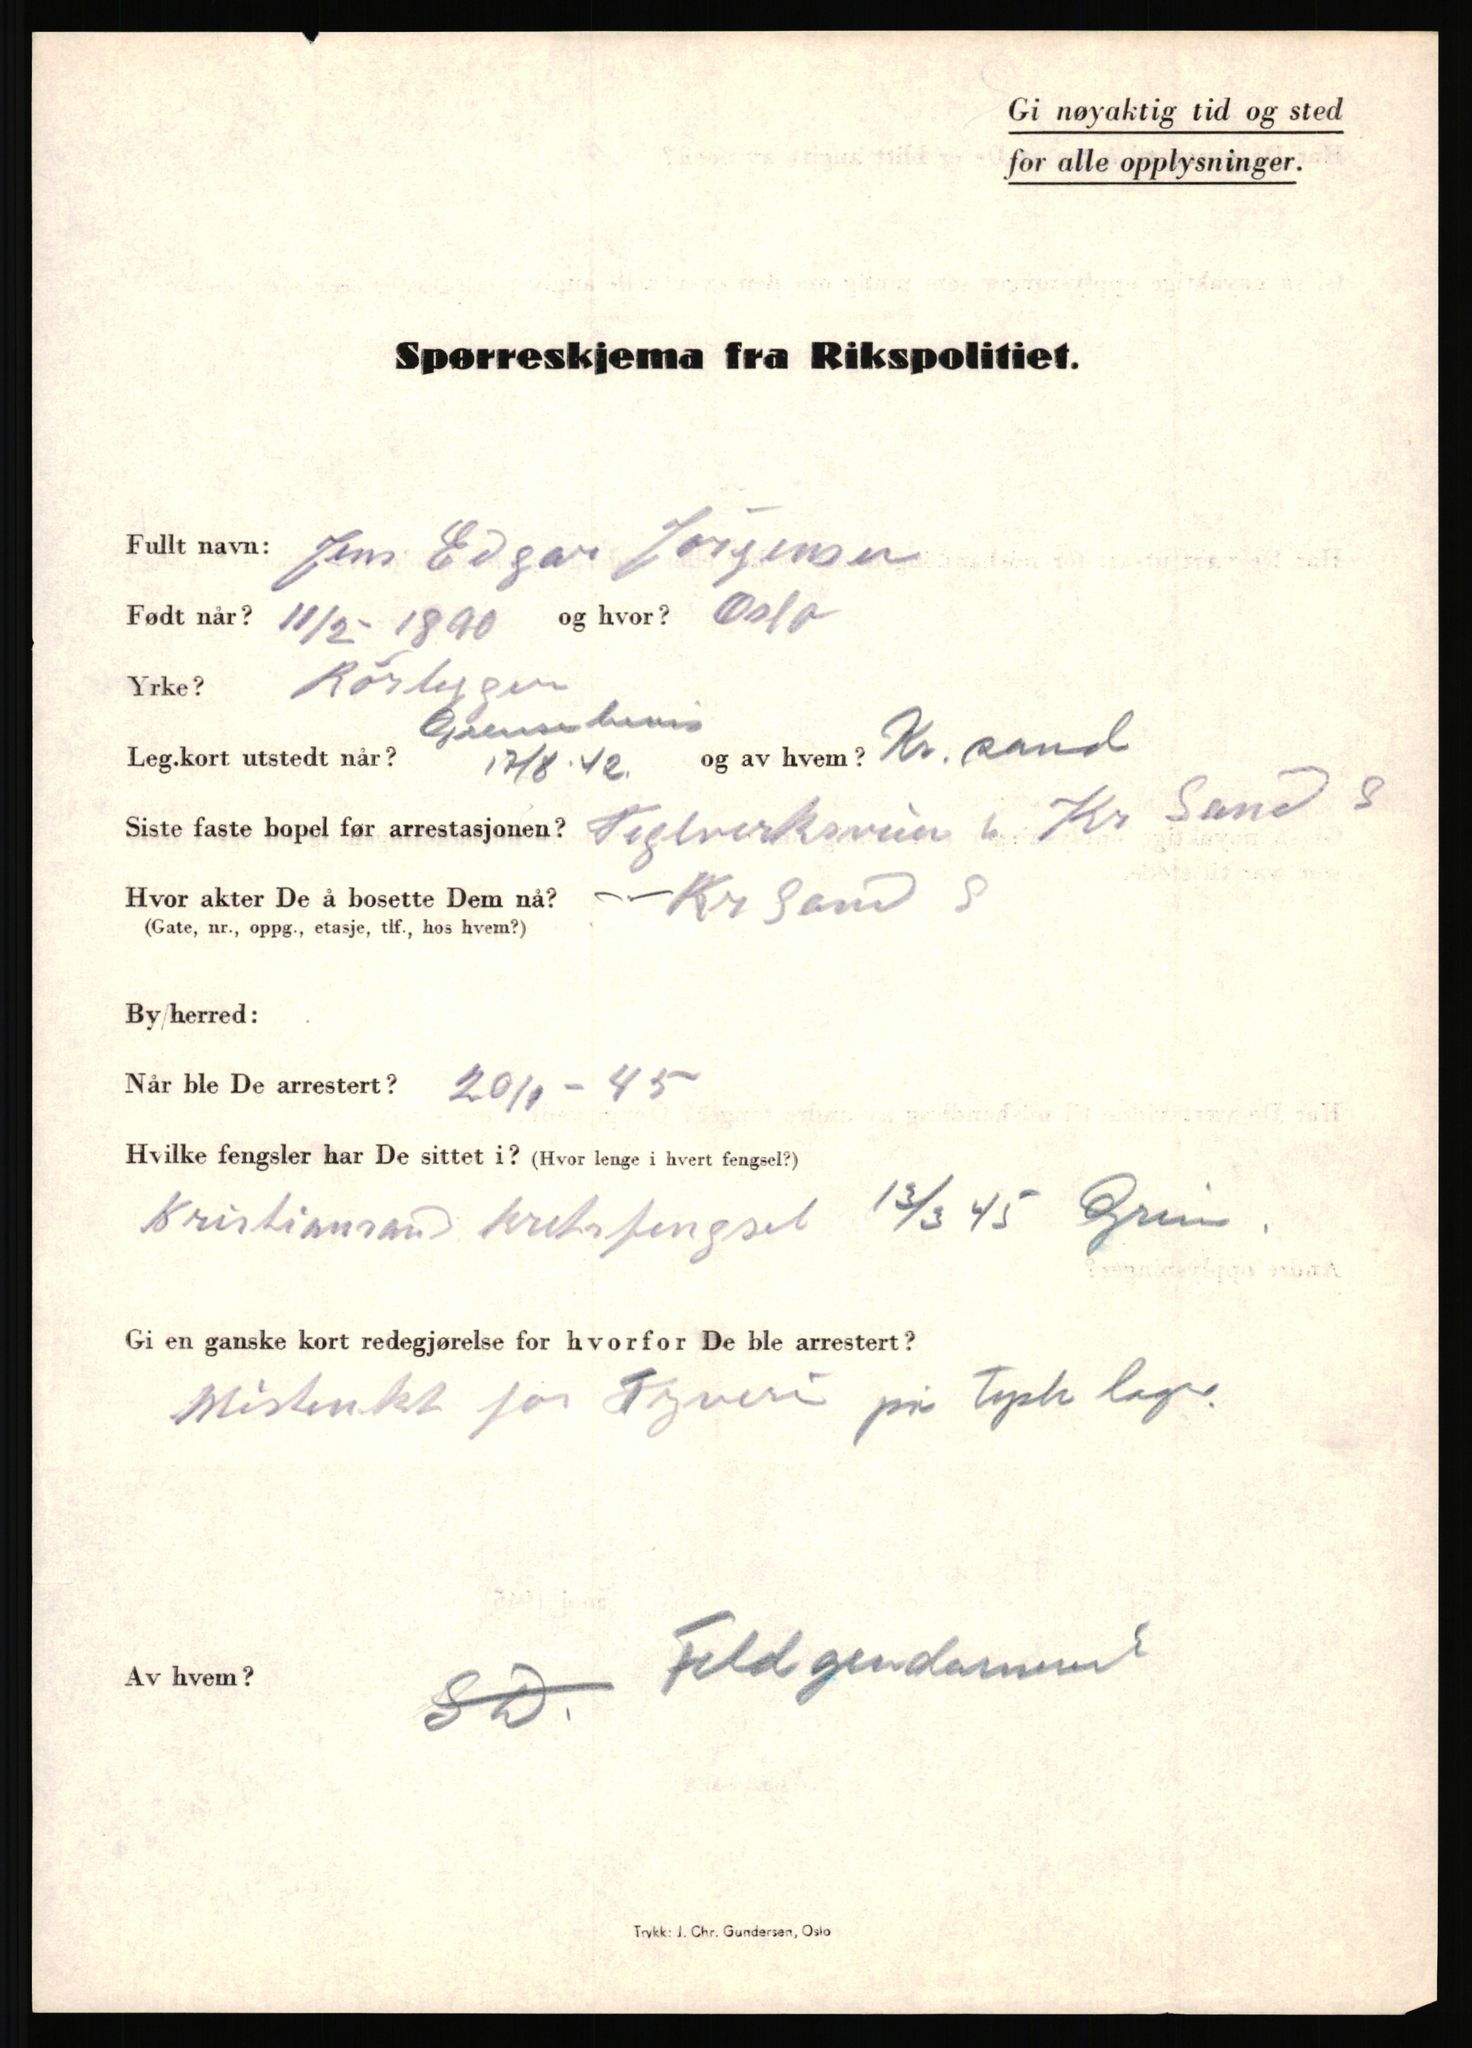 Gi nøyaktig tid og sted
for alle opplysninger.
Spørreskjema fra Rikspolitiet.
Fullt navn: Jens Edgar Jörgensen
Født når? 11/2 - 1890 og hvor? Oslo
Yrke? Rörlegger
Grensebevis
Leg.kort utstedt når? 17/8.42. og av hvem? Kr. sand
Siste faste bopel før arrestasjonen? Teglverksveien Kr Sand S
Hvor akter De å bosette Dem nå? —"— Kr Sand S
(Gate, nr., oppg., etasje, tlf., hos hvem?)
By/herred:
Når ble De arrestert? 20/1 - 45
Hvilke fengsler har De sittet i? (Hvor lenge i hvert fengsel?)
Kristiansand kretsfengsel 13/3 45 Grini.
Gi en ganske kort redegjørelse for hvorfor De ble arrestert?
Mistenkt for Tyveri på Tysk lager.
Av hvem? SD. Feldgendarmeri
Trykk: J. Chr. Gundersen, Oslo